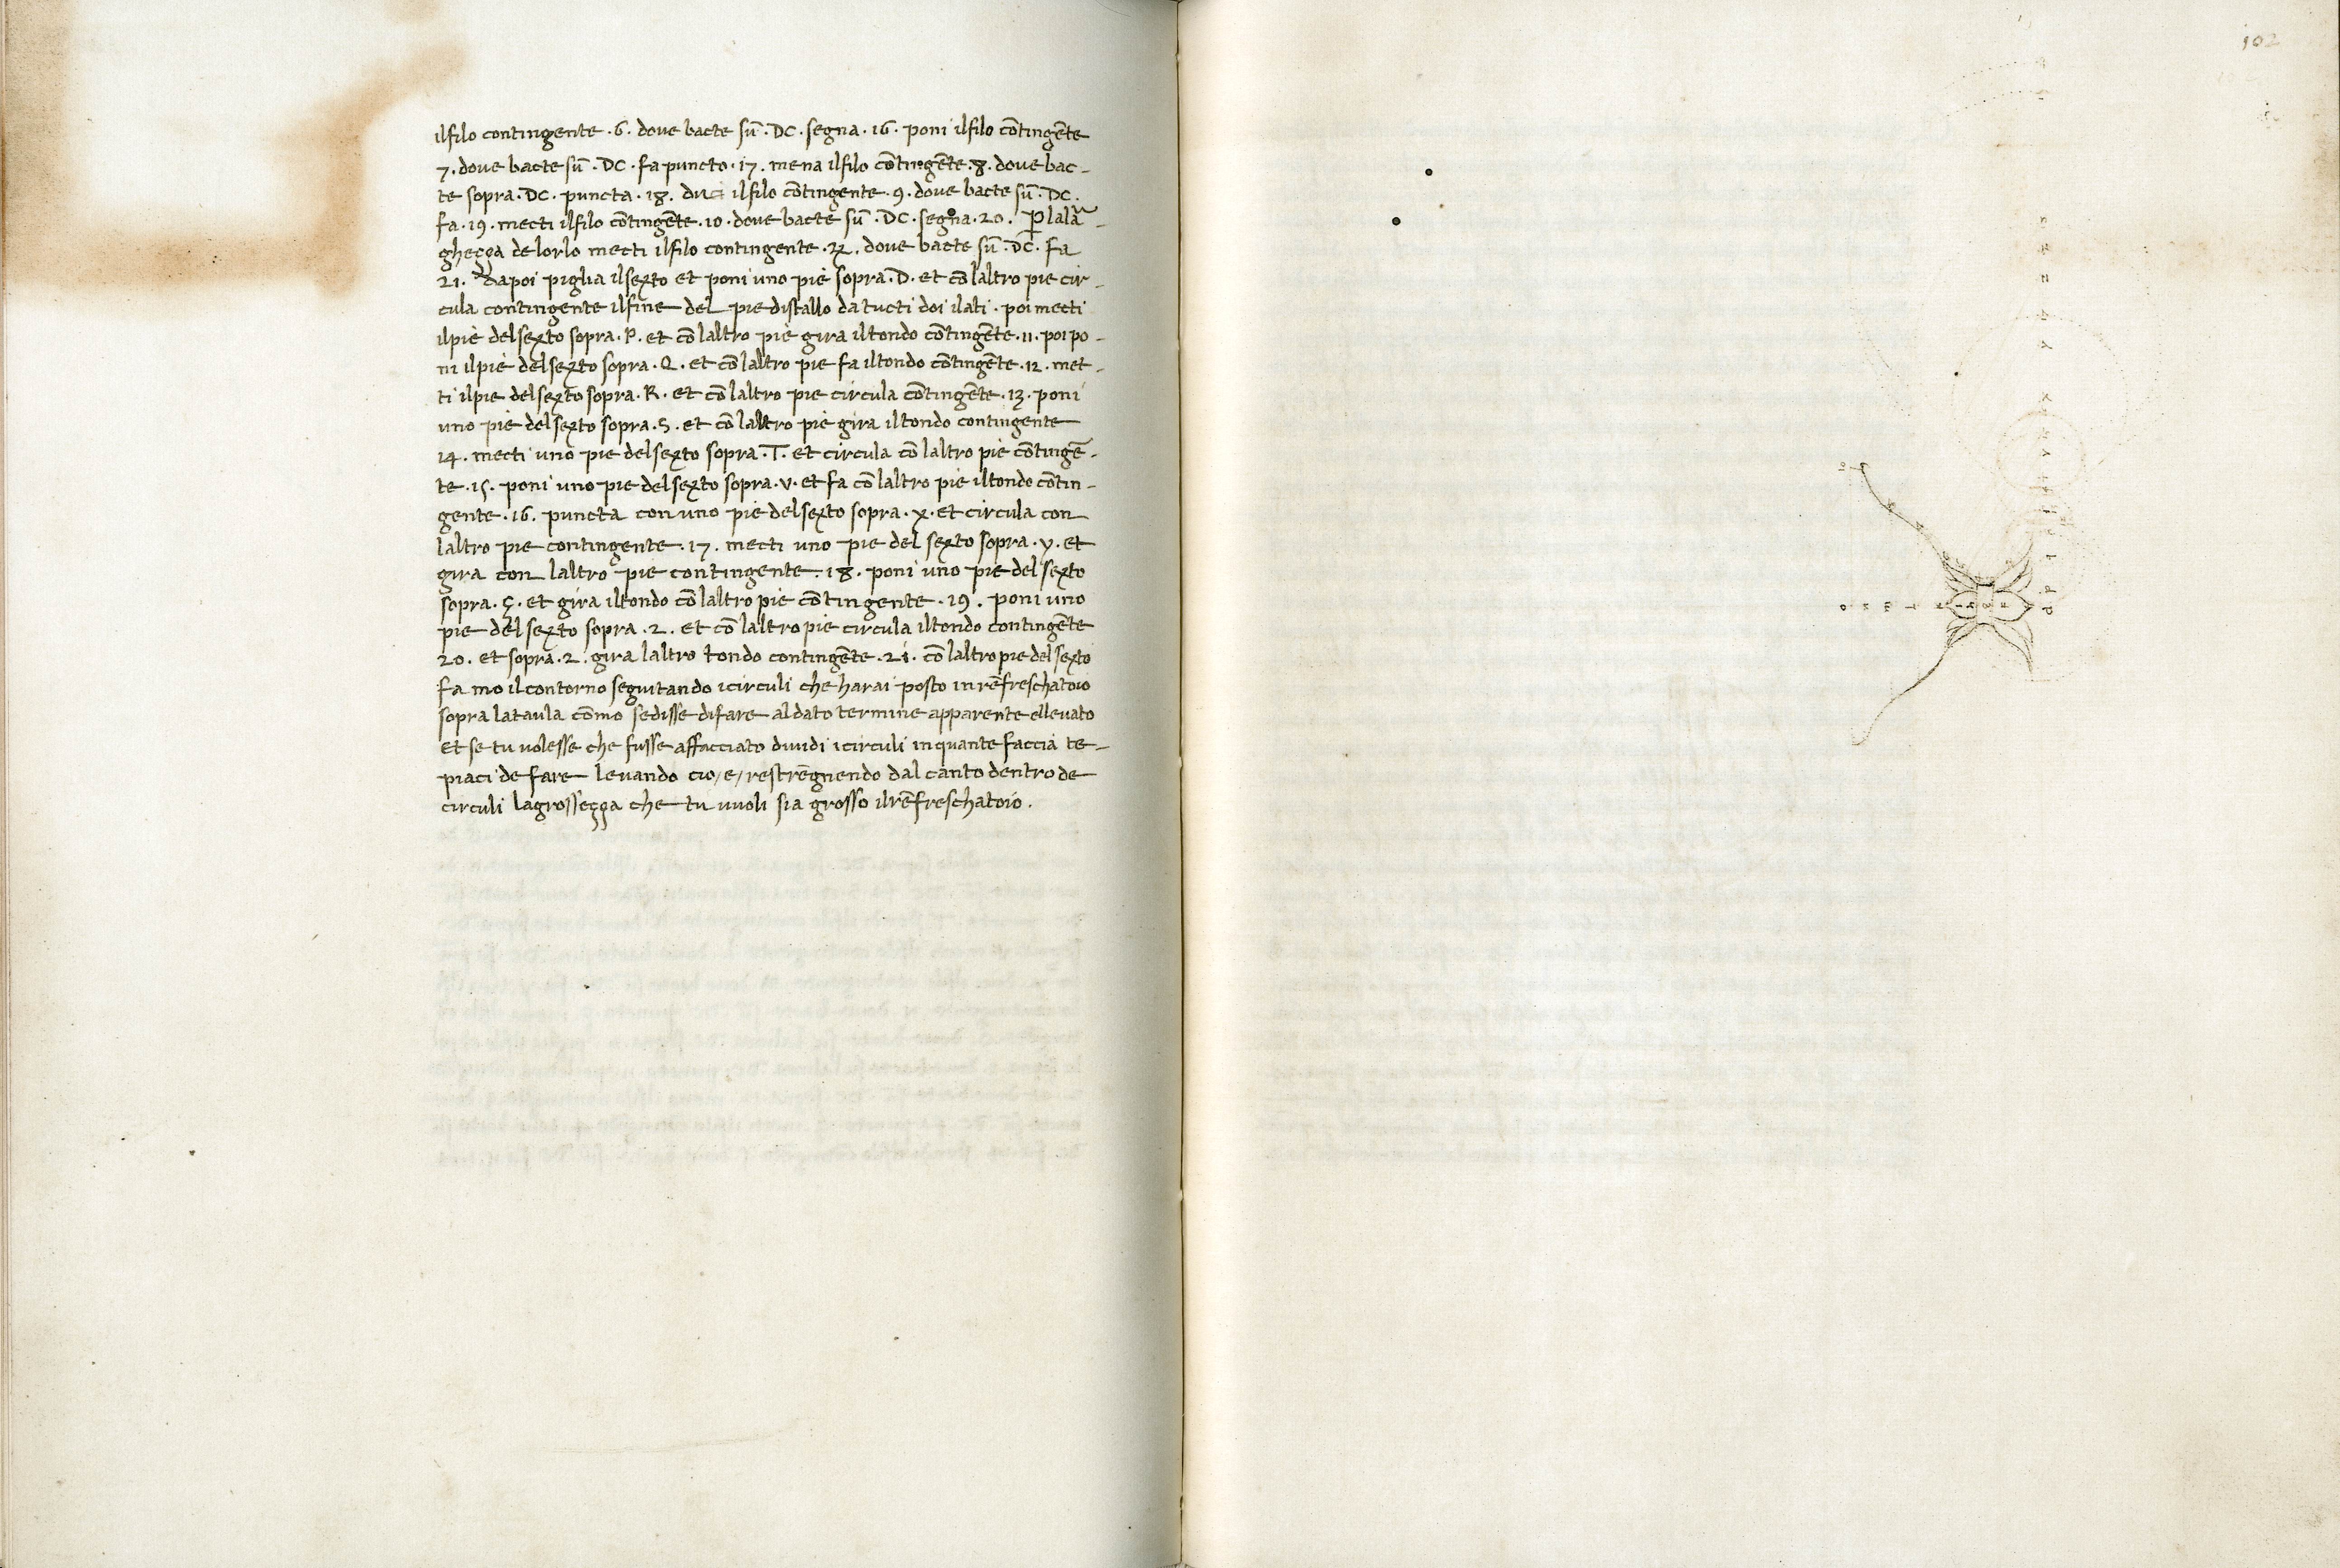 ilfilo contingente .6. dove bacte sū .DC. segna .16. poni ilfilo cōtingēte
7. dove bacte sū .DC. fa puncto .17. mena ilfilo cōtingēte .8. dove bac-
te sopra .DC. puncta .18. duci ilfilo cōtingente .9. dove bacte sū .DC.
fa .19. mecti ilfilo cōtingēte .10. dove bacte sū .DC. segna .20. Ꝑ lalā-
gheçça de lorlo mecti ilfilo contingente . dove bacte sū .DC. fa
21. Dapoi piglia ilsexto et poni uno piè sopra .D. et cō laltro pie cir-
cula contingente ilfine del piedistallo da tucti doi ilati . poi mecti
ilpiè delsexto sopra .P. et cō laltro piè gira iltondo cōtingēte .11. poi po-
ni ilpiè delsexto sopra .Q. et cō laltro pie fa iltondo cōtingēte .12. met-
ti ilpie delsexto sopra .R. et cō laltro pie circula cōtingēte .13. poni
uno pie delsexto sopra .S. et cō laltro piè gira iltondo contingente
14. mecti uno pie delsexto sopra .T. et circula cō laltro piè cōtingē-
te .15. poni uno pie delsexto sopra .v. et fa cō laltro piè iltondo cōtin-
gente .16. puncta con uno pie delsexto sopra .x. et circula con
laltro pie contingente .17. mecti uno pie del sexto sopra .y. et
gira con laltro pie contingente .18. poni uno pie del sexto
sopra .ç. et gira iltondo cō laltro piè cōtingente .19. poni uno
pie del sexto sopra .2. et cō laltro pie circula iltondo contingēte
20. et sopra .2. gira laltro tondo contingēte .21. cō laltro pie del sexto
fa mo ilcontorno seguitando icirculi che harai posto in rēfreschatoio
sopra latavla cōmo sedisse difare aldato termine apparente ellevato
Et se tu volesse che fusse affacciato dividi icirculi inquante faccia te-
piaci de fare levando cio/e/ restrēgnendo dal canto dentro de
circuli lagrosseçça che tu vuoli sia grosso ilrēfreschatoio .
102